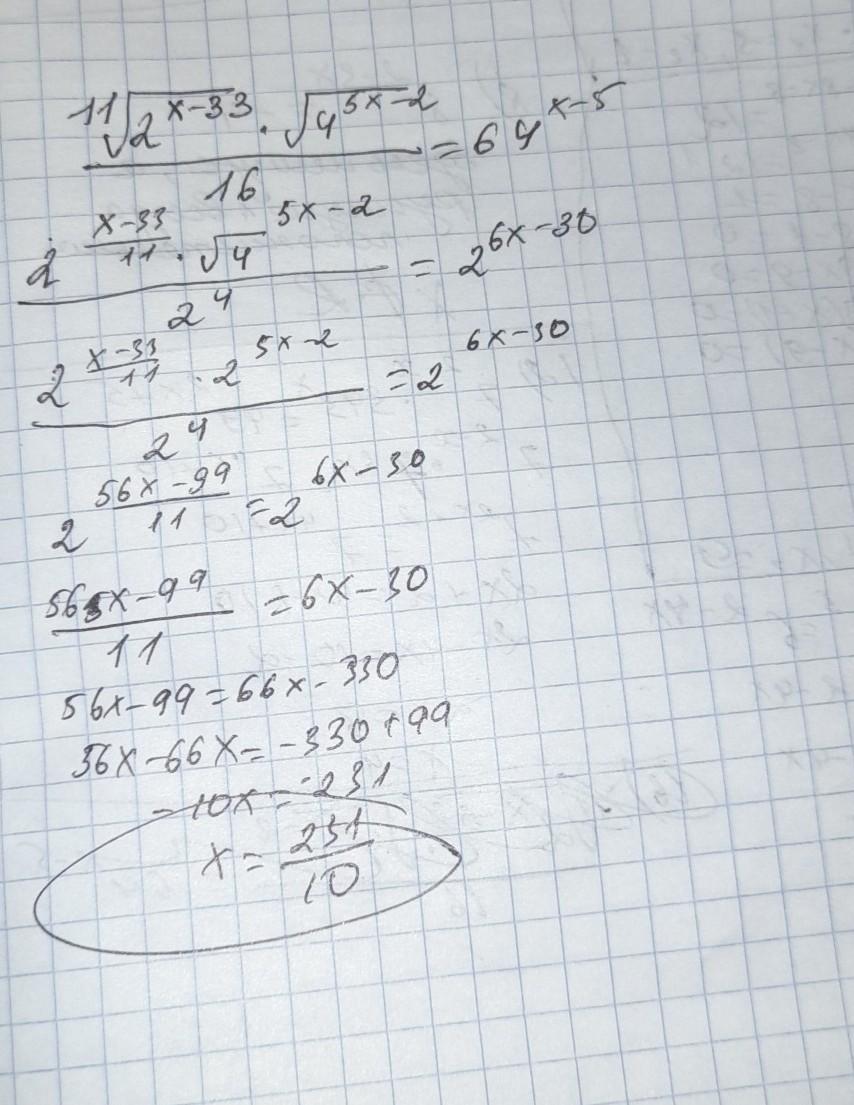 \frac{\sqrt[11]{2^{x-33}} \cdot \sqrt{4^{5x-2}}}{16} = 64^{x-5}
\frac{2^{\frac{x-33}{11}} \cdot \sqrt{4}^{5x-2}}{2^4} = 2^{6x-30}
\frac{2^{\frac{x-33}{11}} \cdot 2^{5x-2}}{2^4} = 2^{6x-30}
2^{\frac{56x-99}{11}} = 2^{6x-30}
\frac{56x-99}{11} = 6x-30
56x-99=66x-330
56x-66x=-330+99
-10x=-231
x=\frac{231}{10}